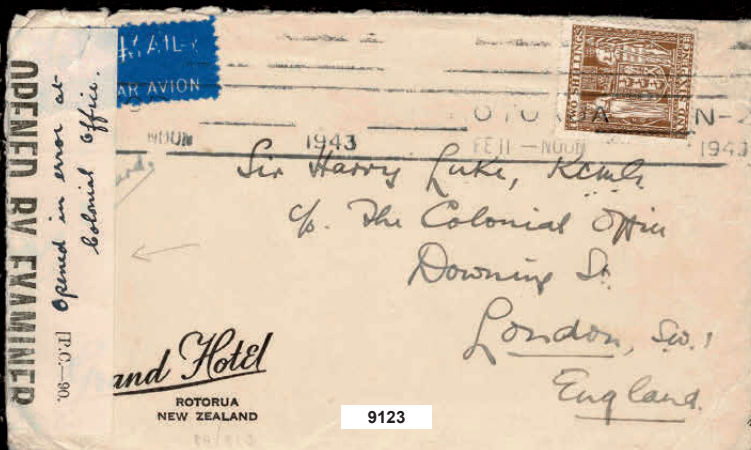 OPENED BY EXAMINER
Opened in error at
Colonial Office.
[P.C.—90.
MAIL
AR AVION
TWO SHILLINGS
AND SIXPENCE
OTORUA
N-Z
NOON
1943
FE 11 — NOON
1943
Sir Harry Luke, KCMG
c/o. The Colonial Office
Downing St.
London, SW.1
England.
and Hotel
ROTORUA
NEW ZEALAND
9123